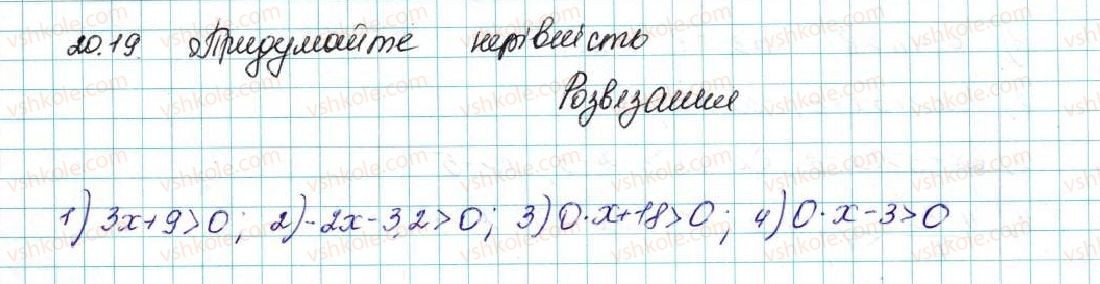 20.19. Придумайте нерівність
Розвязання
1) 3x+9>0; 2) -2x-3,2>0; 3) 0·x+18>0; 4) 0·x-3>0